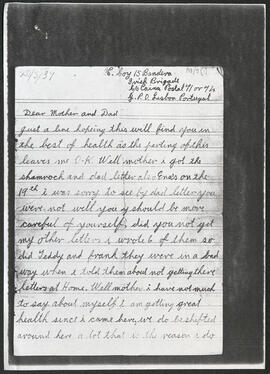 25/3/37
C. Coy 15 Bandera
Irish Brigade
G.P.O. Lisbon Portugal
Dear Mother and Dad
Just a line hoping this will find you in
the best of health as the parting of this
leaves me O.K. Well mother i got the
shamrock and dad letter also Ena's on the
19th i was sorry to see by dad letter you
were not well you should be more
careful of yourself, did you not get
my other letters i wrote 6 of them so
did Teddy and frank they were in a bad
way when i told them about not getting there
letters at Home. Well mother i have not much
to say about myself i am getting great
health since i came here, we do be shifted
around here a lot that is the reason i do